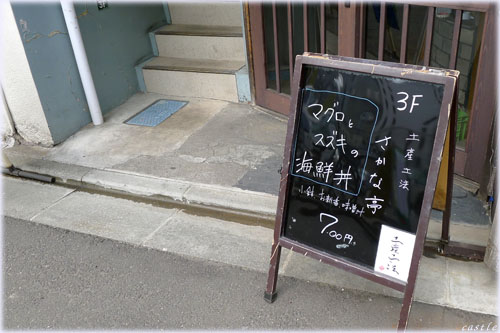 3F
土産工法
さかな亭
マグロと
スズキの
海鮮丼
小鉢・お新香・味噌汁
700円
土産工法
castle